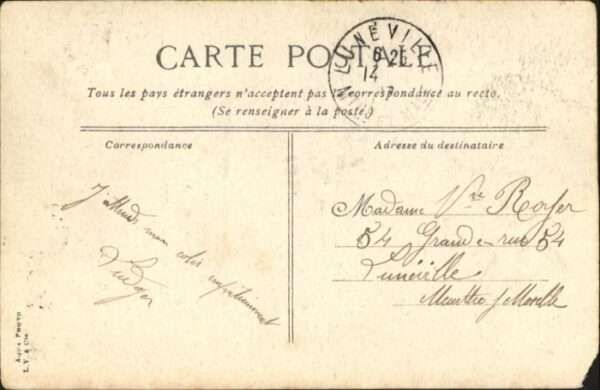 CARTE POSTALE
LUNÉVILLE
14
Tous les pays étrangers n'acceptent pas la correspondance au recto.
(Se renseigner à la poste.)
Correspondance
Adresse du destinataire
J'attends mon colis impatiemment
Madame Vve Royer
54 Grande rue 54
Lunéville
Meurthe & Moselle
L.V. & Cie